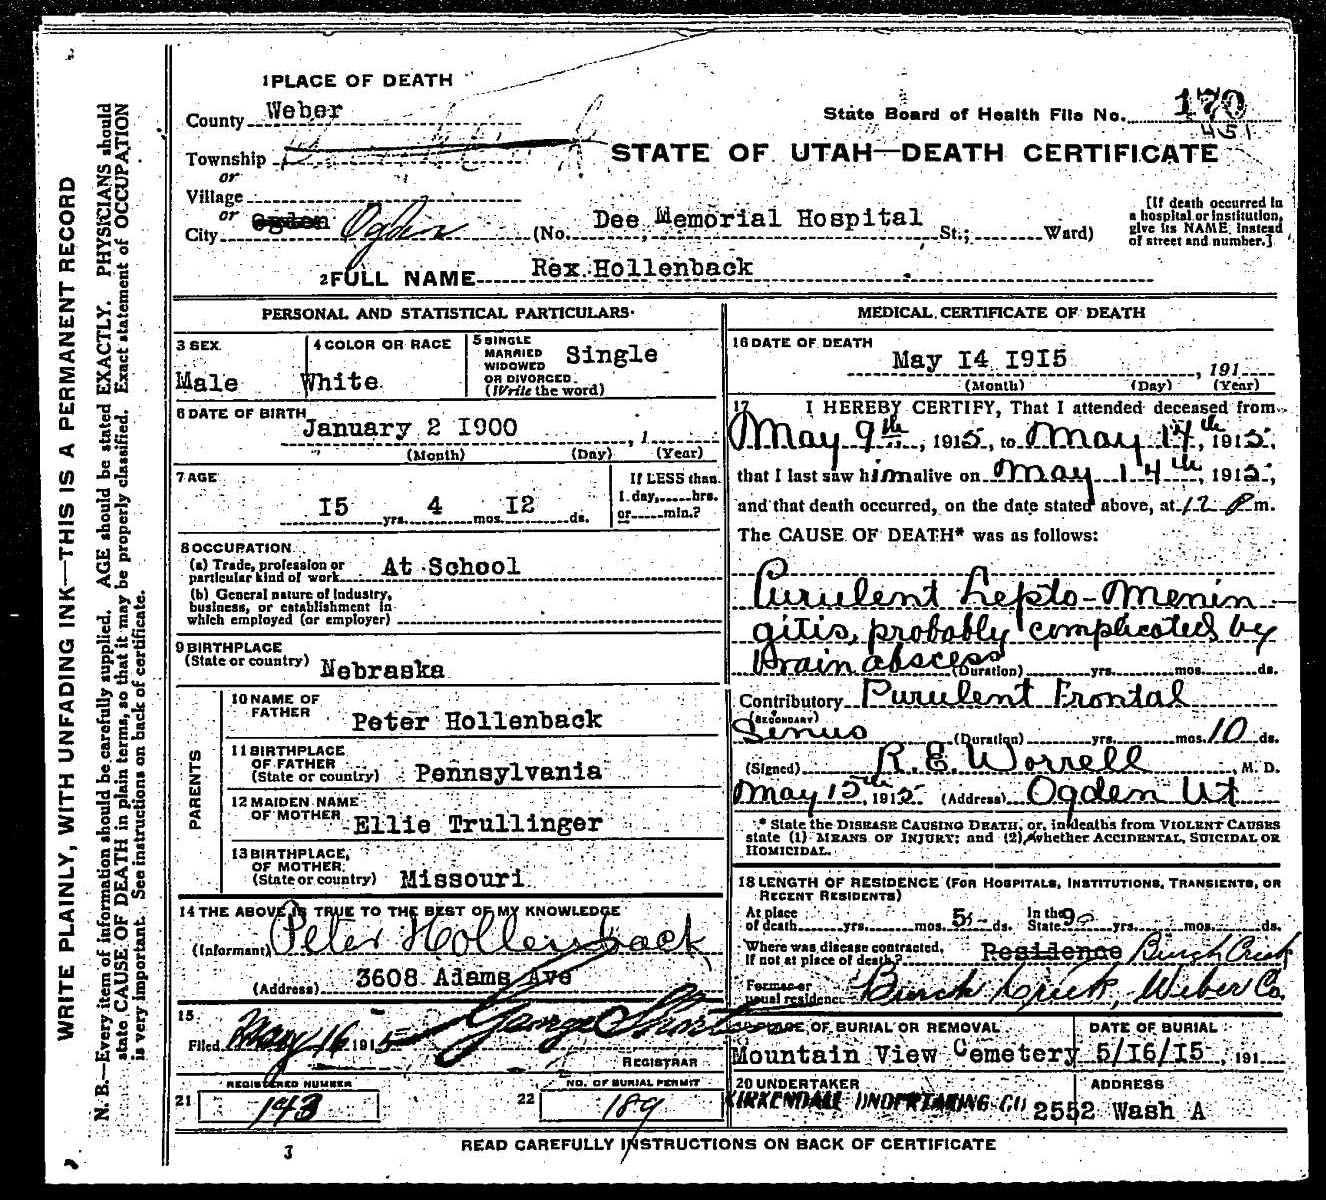 1 PLACE OF DEATH
County Weber
State Board of Health File No. 170
451
Township
or
STATE OF UTAH—DEATH CERTIFICATE
Village
or
City Ogden Ogden (No. Dee Memorial Hospital St.; Ward)
[If death occurred in
a hospital or institution,
give its NAME instead
of street and number.]
2 FULL NAME Rex Hollenback
PERSONAL AND STATISTICAL PARTICULARS
3 SEX
Male
4 COLOR OR RACE
White
5 SINGLE
MARRIED
WIDOWED
OR DIVORCED
(Write the word)
Single
6 DATE OF BIRTH
January 2 1900 , 1
(Month) (Day) (Year)
7 AGE
15 yrs. 4 mos. 12 ds.
If LESS than
1 day, hrs.
or min.?
8 OCCUPATION
(a) Trade, profession or
particular kind of work At School
(b) General nature of industry,
business, or establishment in
which employed (or employer)
9 BIRTHPLACE
(State or country) Nebraska
PARENTS
10 NAME OF
FATHER Peter Hollenback
11 BIRTHPLACE
OF FATHER
(State or country) Pennsylvania
12 MAIDEN NAME
OF MOTHER Ellie Trullinger
13 BIRTHPLACE,
OF MOTHER
(State or country) Missouri
14 THE ABOVE IS TRUE TO THE BEST OF MY KNOWLEDGE
(Informant) Peter Hollenback
(Address) 3608 Adams Ave
15
Filed May 16 1915 George Shorten
REGISTRAR
REGISTERED NUMBER
21 143
NO. OF BURIAL PERMIT
22 189
MEDICAL CERTIFICATE OF DEATH
16 DATE OF DEATH
May 14 1915 , 191
(Month) (Day) (Year)
17 I HEREBY CERTIFY, That I attended deceased from
May 9th, 1915, to May 14th, 1915,
that I last saw him alive on May 14th, 1915,
and that death occurred, on the date stated above, at 12 P m.
The CAUSE OF DEATH* was as follows:
Purulent Lepto-Menin
gitis, probably complicated by
Brain abscess
(Duration) yrs. mos. ds.
Contributory Purulent Frontal
(SECONDARY)
Sinus (Duration) yrs. mos. 10 ds.
(Signed) R. E. Worrell M. D.
May 15th, 1915 (Address) Ogden Ut
* State the DISEASE CAUSING DEATH, or, in deaths from VIOLENT CAUSES
state (1) MEANS OF INJURY; and (2) whether ACCIDENTAL, SUICIDAL OR
HOMICIDAL.
18 LENGTH OF RESIDENCE (FOR HOSPITALS, INSTITUTIONS, TRANSIENTS, OR
RECENT RESIDENTS)
At place
of death yrs. mos. 5 ds. In the
State 9 yrs. mos. ds.
Where was disease contracted,
If not at place of death? Residence Burch Creek
Former or
usual residence Burch Creek, Weber Co.
19 PLACE OF BURIAL OR REMOVAL
Mountain View Cemetery
DATE OF BURIAL
5/16/15 , 191
20 UNDERTAKER
KIRKENDALL UNDERTAKING CO
ADDRESS
2552 Wash A
READ CAREFULLY INSTRUCTIONS ON BACK OF CERTIFICATE
3
WRITE PLAINLY, WITH UNFADING INK—THIS IS A PERMANENT RECORD
N. B.—Every item of information should be carefully supplied. AGE should be stated EXACTLY. PHYSICIANS should
state CAUSE OF DEATH in plain terms, so that it may be properly classified. Exact statement of OCCUPATION
is very important. See instructions on back of certificate.